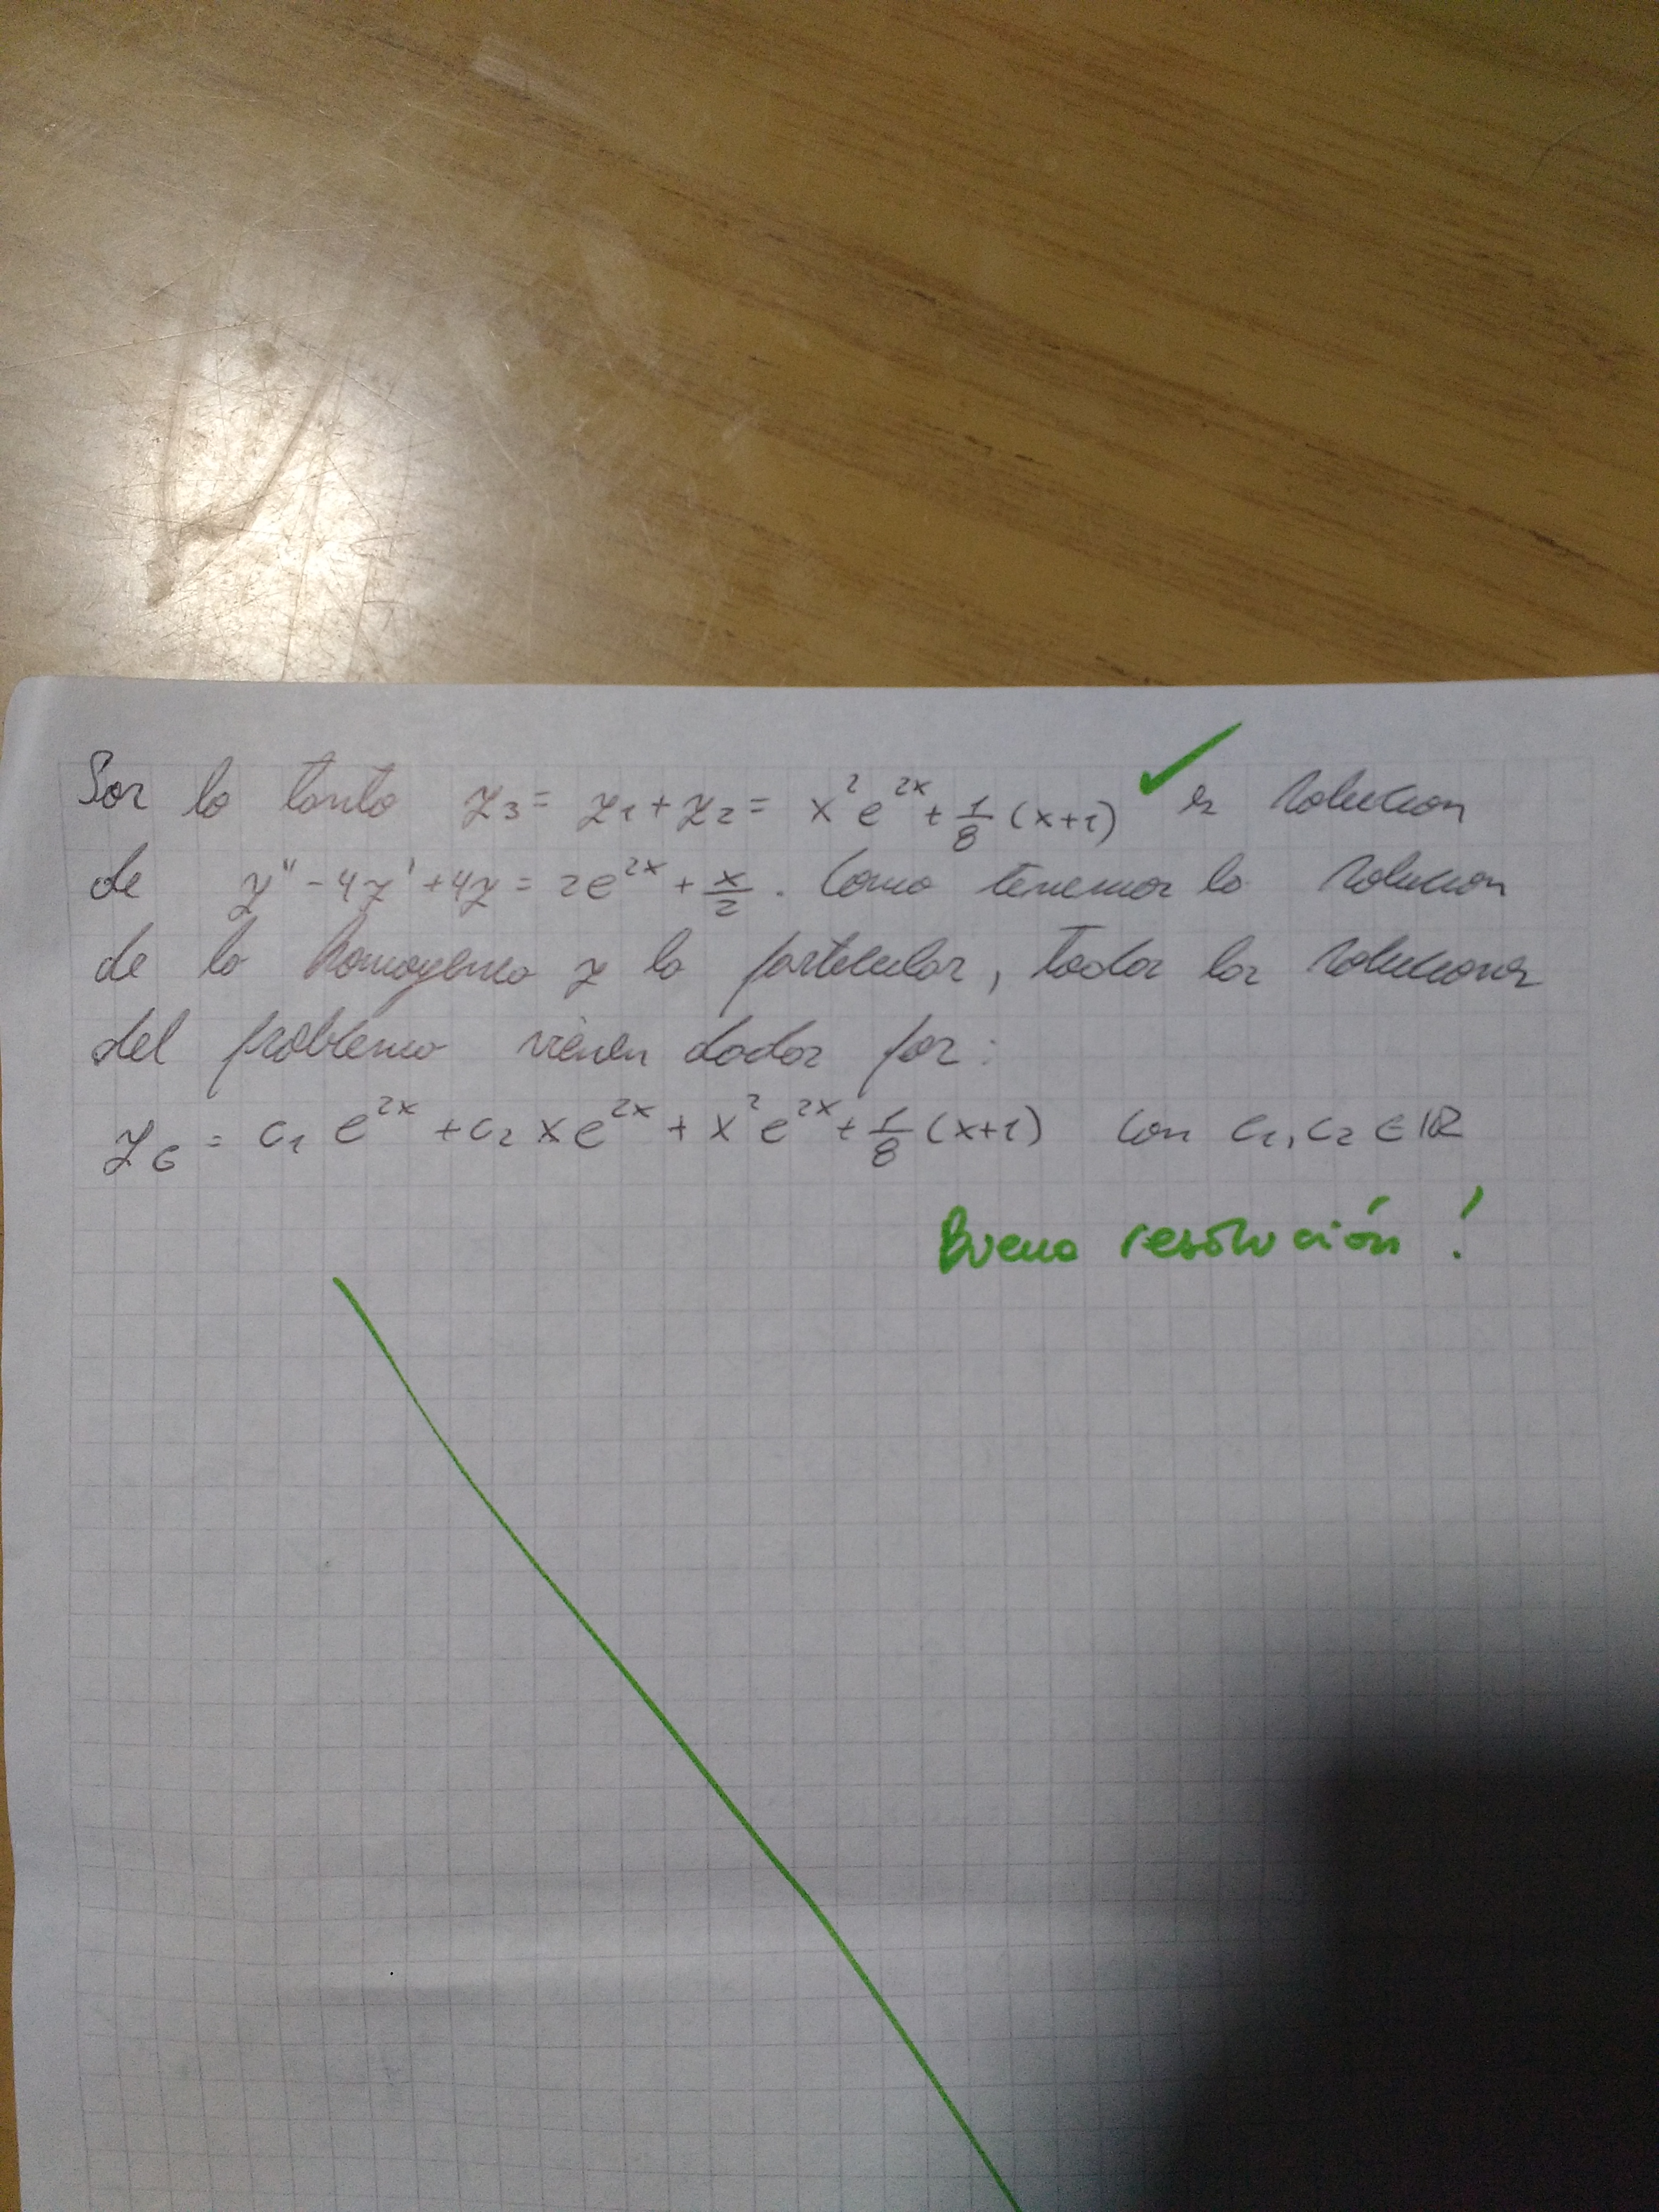 Por lo tanto y₃ = y₁ + y₂ = x² e²ˣ + 1/8 (x+1) ✓ es solucion
de y'' - 4y' + 4y = 2e²ˣ + x/2 . Como tenemos la solucion
de la homogenea y la particular, todas las soluciones
del problema vienen dadas por:
y_G = c₁ e²ˣ + c₂ x e²ˣ + x² e²ˣ + 1/8 (x+1) con c₁, c₂ ∈ ℝ
Buena resolución!